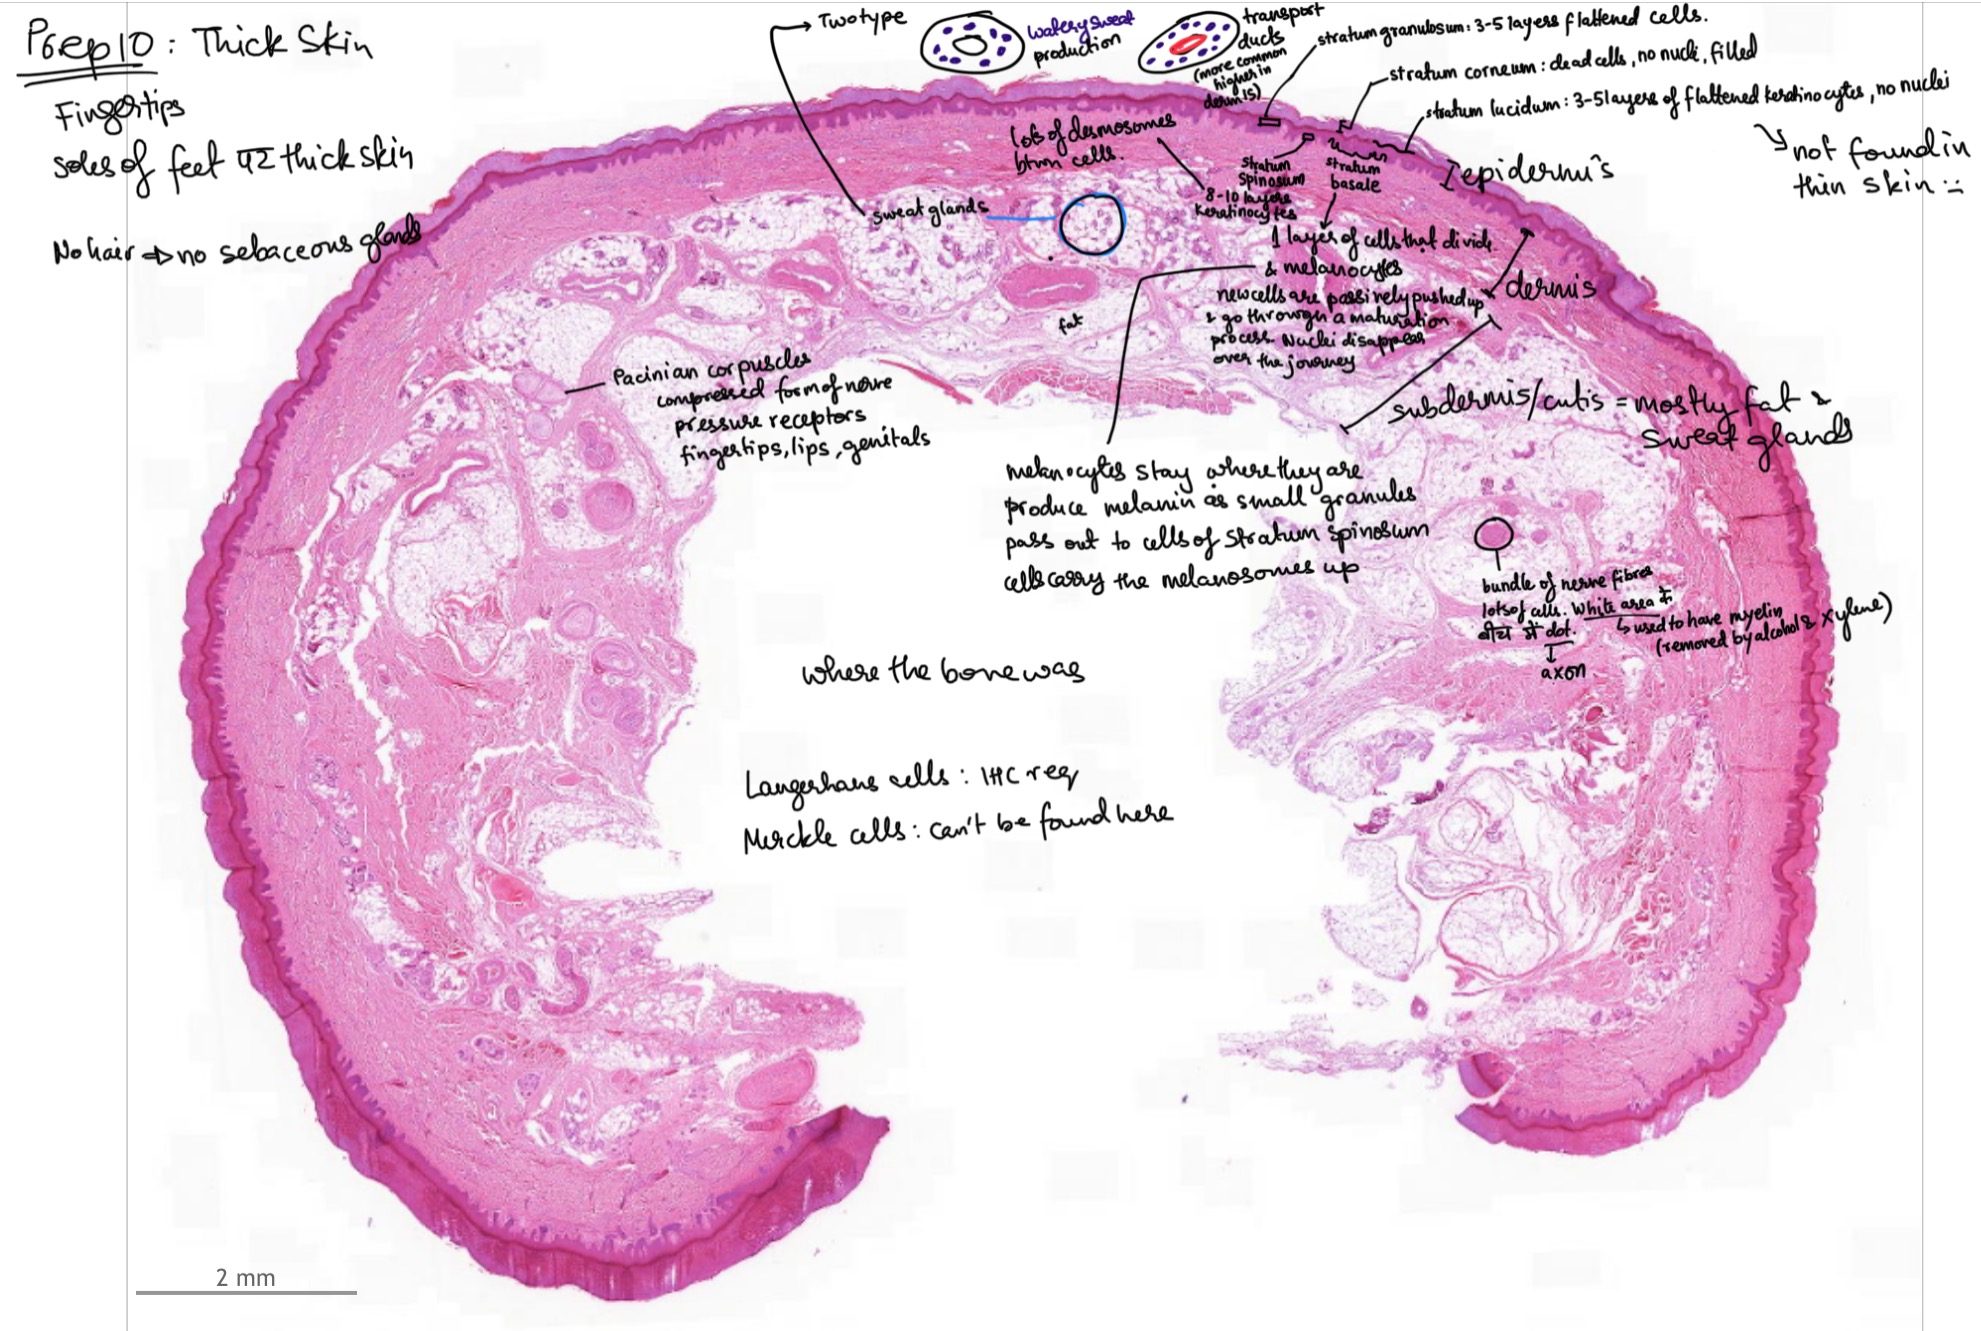 Prep 10 : Thick Skin
Fingertips
soles of feet पर thick skin
No hair => no sebaceous glands
Two type
watery sweat
production
transport
ducts
(more common
higher in
dermis)
stratum granulosum: 3-5 layers flattened cells.
stratum corneum : dead cells, no nuclei, filled
stratum lucidum : 3-5 layers of flattened keratinocytes, no nuclei
not found in
thin skin
lots of desmosomes
btwn cells.
Stratum
Spinosum
8-10 layers
keratinocytes
stratum
basale
epidermis
sweat glands
1 layer of cells that divide
& melanocytes
new cells are passively pushed up
& go through a maturation
process. Nuclei disappear
over the journey
dermis
fat
Pacinian corpuscles
compressed form of nerve
pressure receptors
fingertips, lips, genitals
subdermis/cutis = mostly fat &
sweat glands
melanocytes stay where they are
produce melanin as small granules
pass out to cells of Stratum spinosum
cells carry the melanosomes up
bundle of nerve fibres
lots of all. White area के
बीच में dot.
↳ used to have myelin
(removed by alcohol & xylene)
axon
where the bone was
Langerhans cells : IHC req
Merckle cells : can't be found here
2 mm